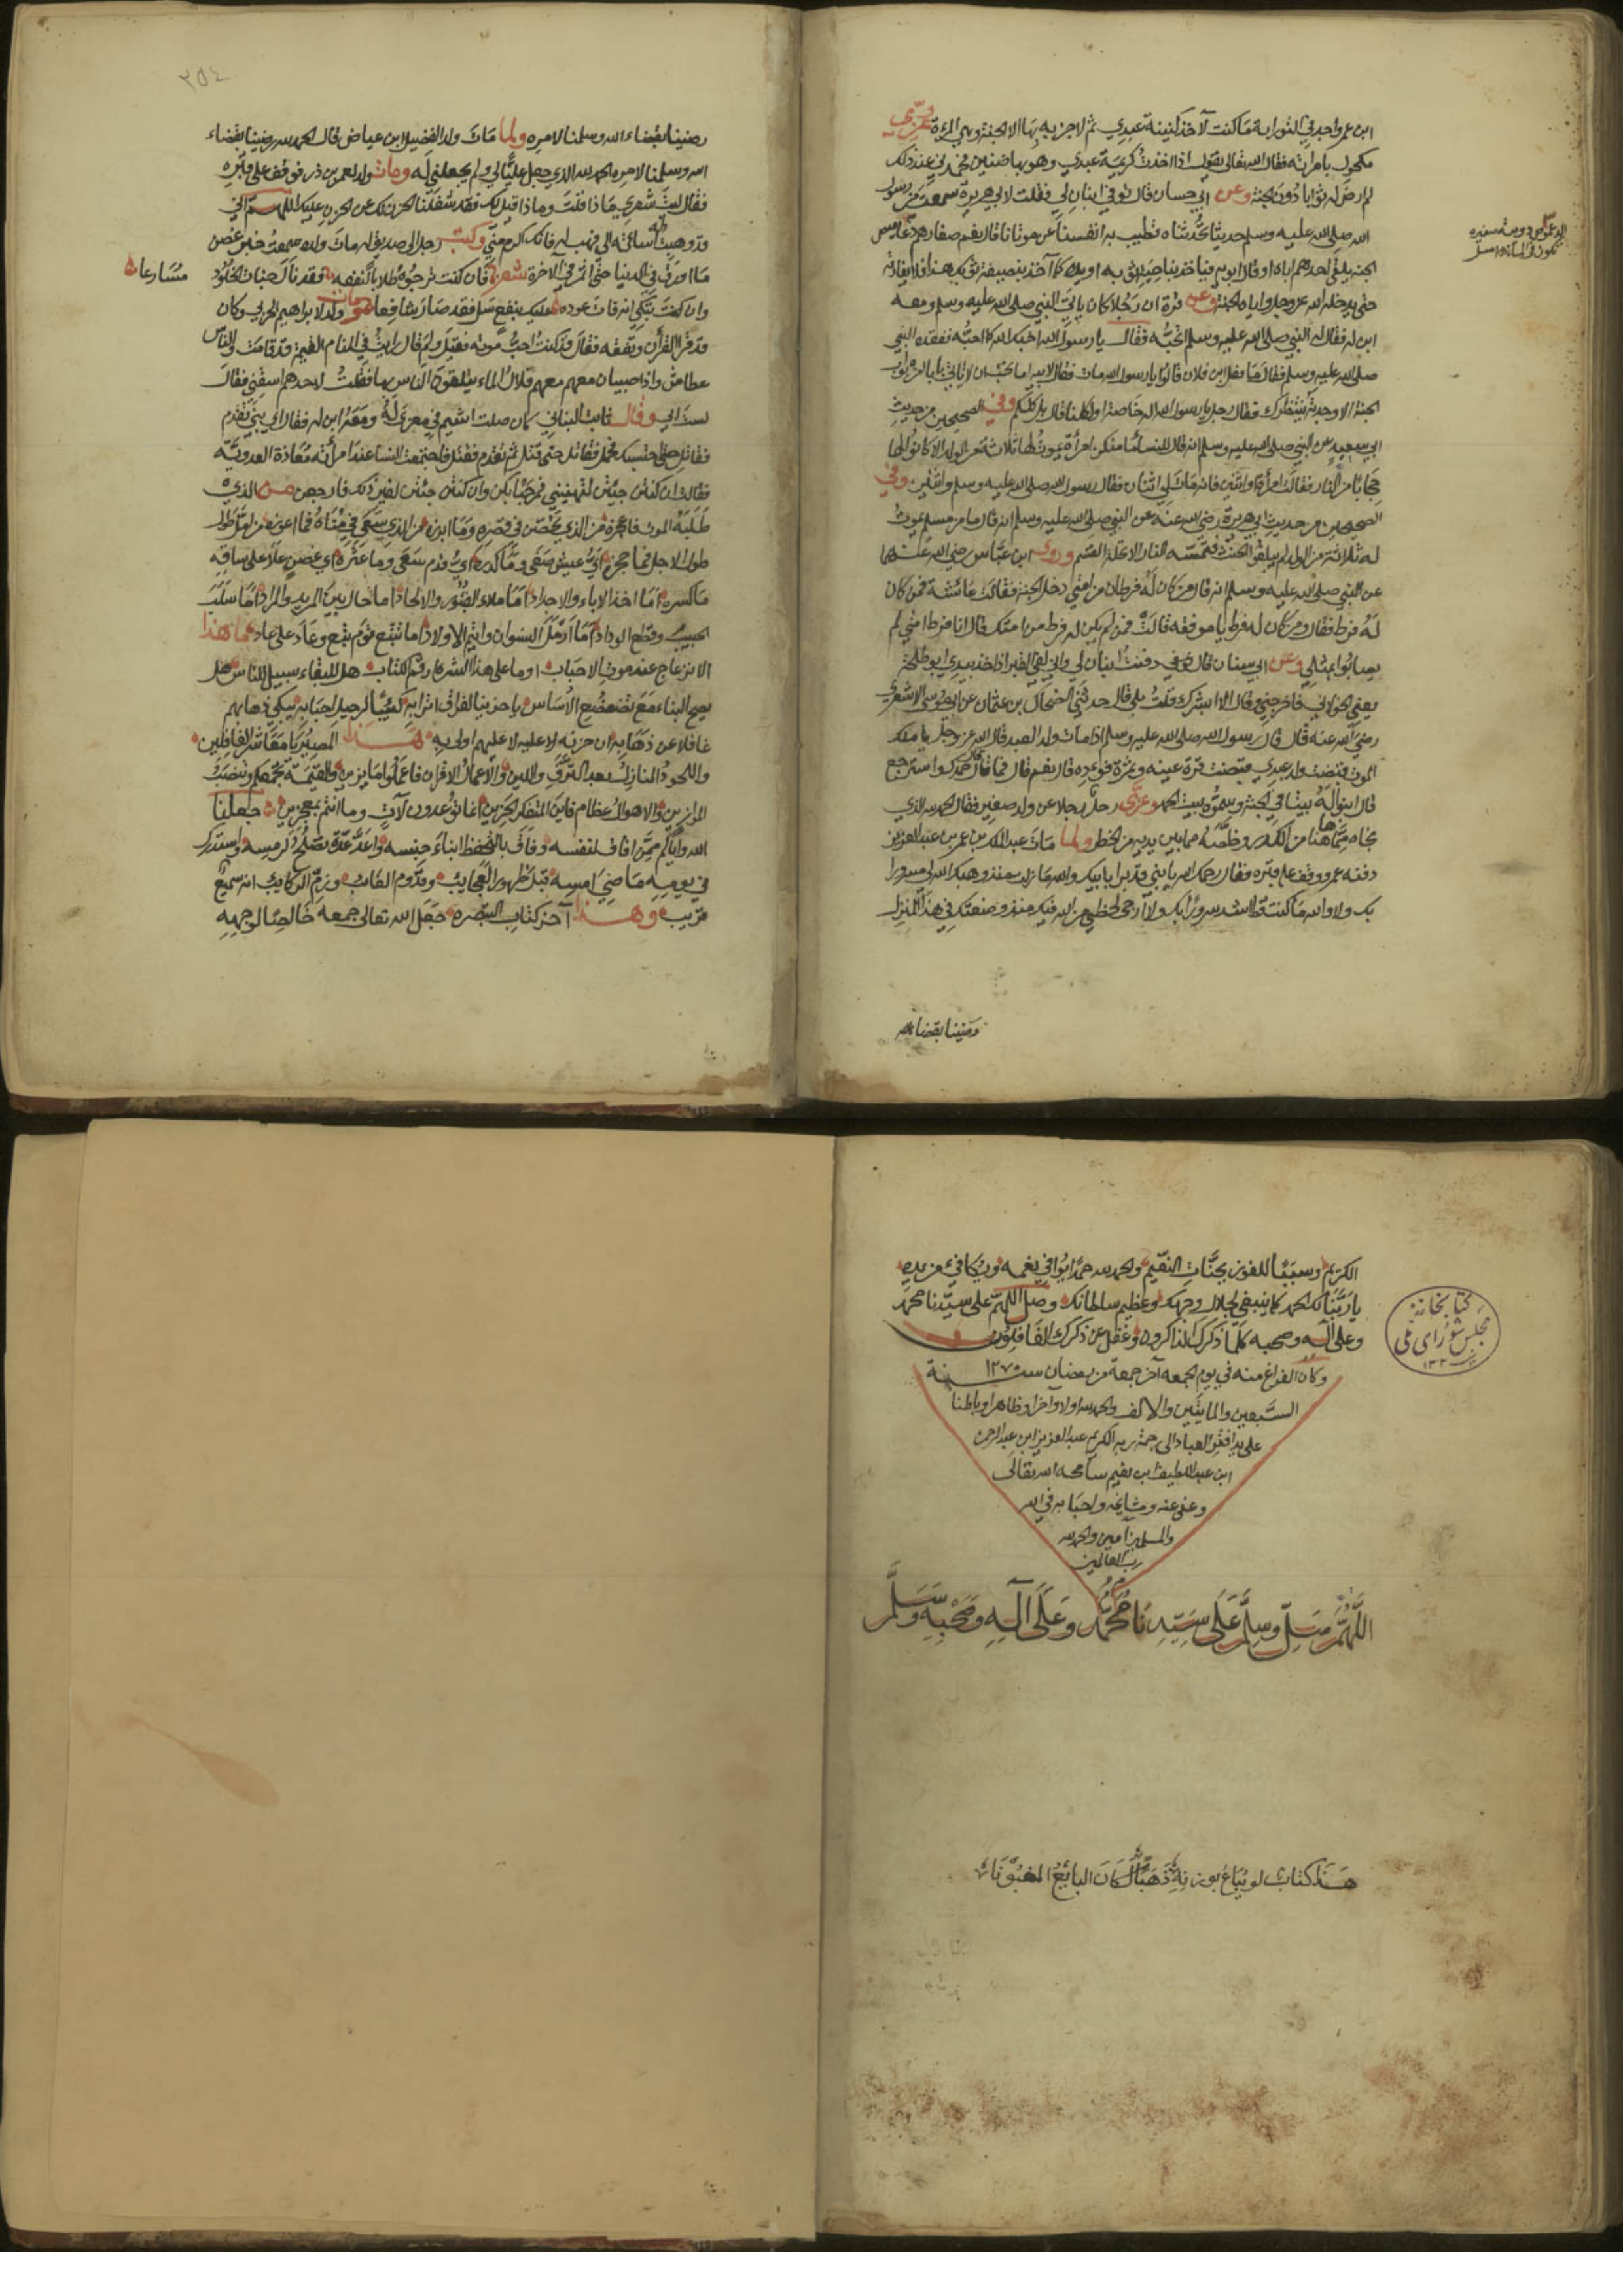 ابن عمر واحد في التوراية ما كنت لآخذ لنينة عبدي ثم لا جزاء بها الا الجنة وهي المرءة عزى
مكحول بامراته فقال الله تعالى يقول اذا اخذت كريمة عبدي وهو بها ضنين فحمدني عند ذلك
لم ارض له ثوابا دون الجنة وعن ابي حسان قال توفي ابنان لي فقلت لابي هريرة سمعت من رسول
الله صلى الله عليه وسلم حديثا تحدثناه تطيب به انفسنا عن موتانا قال نعم صغارهم دعاميص
الدعموص دويبة سوداء
تكون في الماء
الجنة يلقى احدهم اباه او قال ابويه فياخذ بناحية ثوبه او يده كما آخذ بصنيفة ثوبك هذا فلا يفارقه
حتى يدخله الله عز وجل واباه الجنة وعن قرة ان رجلا كان ياتي النبي صلى الله عليه وسلم ومعه
ابن له فقال له النبي صلى الله عليه وسلم اتحبه فقال يا رسول الله احبك الله كما احبه ففقده النبي
صلى الله عليه وسلم فقال ما فعل ابن فلان قالوا يا رسول الله مات فقال لابيه اما تحب ان لا تاتي بابا من ابواب
الجنة الا وجدته ينتظرك فقال رجل يا رسول الله اله خاصة او لكلنا قال بل لكلكم وفي الصحيحين من حديث
ابي سعيد عن النبي صلى الله عليه وسلم انه قال للنساء ما منكن امرأة يموت لها ثلاثة من الولد الا كانوا لها
حجابا من النار فقالت امرأة واثنين فانه مات لي اثنان فقال رسول الله صلى الله عليه وسلم واثنين وفي
الصحيحين من حديث ابي هريرة رضي الله عنه عن النبي صلى الله عليه وسلم انه قال ما من مسلم يموت
له ثلاثة من الولد لم يبلغوا الحنث فتمسه النار الا تحلة القسم وروى ابن عباس رضي الله عنهما
عن النبي صلى الله عليه وسلم انه قال من كان له فرطان من امتي دخل الجنة فقالت عائشة فمن كان
له فرط فقال ومن كان له فرط يا موفقة قالت فمن لم يكن له فرط من امتك قال انا فرط امتي لم
يصابوا بمثلي وعن ابي سنان قال دفنت ابنا لي واني لفي القبر اذ اخذ بيدي ابو طلحة
يعني الخولاني فاخرجني وقال الا ابشرك قلت بلى قال حدثني الضحاك بن عثمان عن ابي موسى الاشعري
رضي الله عنه قال قال رسول الله صلى الله عليه وسلم اذا مات ولد العبد قال الله عز وجل يا ملك
الموت قبضت ولد عبدي قبضت قرة عينه وثمرة فواده قال نعم قال فما قال قال حمدك واسترجع
قال ابنوا له بيتا في الجنة وسموه بيت الحمد وعزى رجل رجلا عن ولد صغير فقال الحمد لله الذي
نجاه مما هاهنا من الكدر وخلصه مما بين يديه من الخطر ولما مات عبد الملك بن عمر بن عبد العزيز
دفنه عمر ووقف على قبره فقال رحمك الله يا بني قد برا بابيك والله ما زلت منذ وهبك الله لي مسرورا
بك ولا والله ما كنت قط اشد سرورا بك ولا ارجى لحظي من الله فيك منذ وضعتك في هذا المنزل
رضينا بقضاء الله
٣٥٤
رضينا بقضاء الله وسلمنا لامره ولما مات ولد الفضيل ابن عياض قال الحمد لله رضينا بقضاء
الله وسلمنا لامره الحمد لله الذي جعل عليا لي ولم يجعلني له ومات ولد لعمر بن ذر فوقف على قبره
فقال ليت شعري ماذا قلت وماذا قيل لك فقد شغلنا الحزن لك عن الحزن عليك اللهم اني
قد وهبت له اساءته الي فهب له فانك اكرم مني وكتب رجل الى صديق له مات ولده سمعت خبر غصن
ما اورق في الدنيا حتى اثمر في الآخرة شعر فان كنت ترجوه طلابا لنفعه فقد نال جنات الخلود
مسارعا
وان كنت تبكي انه فات عوده عليك بنفع سل فقد صار شافعا ومات ولد لابراهيم الحربي وكان
قد قرا القرآن وتفقه فقال قد كنت احب موته فقيل ولم قال رايت في المنام القيمة قد قامت والناس
عطاش واذا صبيان معهم قلال الماء يتلقون الناس بها فقلت لاحدهم اسقني فقال
لست ابي وقال ثابت البناني كان صلت اشيم في مغزى له ومعه ابن له فقال اي بني تقدم
فقاتل حتى احتسبك فحمل فقاتل حتى قتل ثم تقدم فقتل فاجتمعت النسا عند امرأته معاذة العدوية
فقالت ان كنتن جيتن لتهنيني فمرحبا بكن وان كنتن جئتن لغير ذلك فارجعن من الذي
طلبه الموت فاعجزه من الذي تحصن في قصره وما ابرزه من الذي سعى في مناه فما اعوزه من امل طول
طول الاجل فما حجزه اي عيش صفى وما كدره اي قدم سعى وما عثره اي غصن علا على ساقه
ما كسره اما اخذ الاباء والاجداد اما ملاء القبور والالحاد اما حال بين المريد والمراد اما سلب
الحبيب وقطع الوداد اما ارمل النسوان وايتم الاولاد اما تتبع قوم تبع وعاد على عاد فما هذا
الانزعاج عند موت الاحباب او ما على هذا الشرط رقم الكتاب هل للبقاء سبيل للناس هل
يصح البناء مع تضعضع الأساس يا حزينا لفراق اترابه كئيبا لرحيل احبابه يبكي ذهابهم
غافلا عن ذهابه ان حزنه لا عليه لا عليهم اولى به هذا المصير يا معاشر الغافلين
واللحود المنازل بعد الترف واللين والاعمال الاقران فاعملوا ما يزين والقيمة تجمعكم وتنصب
الموازين والاهوال عظام فاين المتفكر الحزين انما توعدون لآت وما انتم بمعجزين جعلنا
الله واياكم ممن افاق لنفسه وفاق بالتحفظ ابناء جنسه واعد عدة تصلح لرمسه واستدرك
في يومه ما مضى امسه قبل ظهور العجايب وقدوم الغائب وزم الركايب انه سميع
قريب وهذا آخر كتاب التبصرة جعل الله تعالى جمعه خالصا لوجهه
الكريم وسببا للفوز بجنات النعيم والحمد لله حمدا يوافي نعمه ويكافئ مزيده
يا ربنا لك الحمد كما ينبغي لجلال وجهك وعظيم سلطانك وصل اللهم على سيدنا محمد
وعلى آله وصحبه كلما ذكرك الذاكرون وغفل عن ذكرك الغافلون
كتابخانه
مجلس شورای ملی
وكان الفراغ منه في يوم الجمعه آخر جمعة من رمضان سنة ١٢٧٠
السبعين والمايتين والالف والحمد لله اولا وآخرا وظاهرا وباطنا
على يد افقر العباد الى رحمة ربه الكريم عبد العزيز ابن عبد الرحمن
ابن عبد اللطيف ابن نعيم سامحه الله تعالى
وعفى عنه ومشايخه واحبابه في الله
والمسلمين آمين والحمد لله
رب العالمين
اللهم صل وسلم على سيدنا محمد وعلى آله وصحبه وسلم
هذا كتاب لو يباع بوزنه ذهبا لكان البائع المغبونا